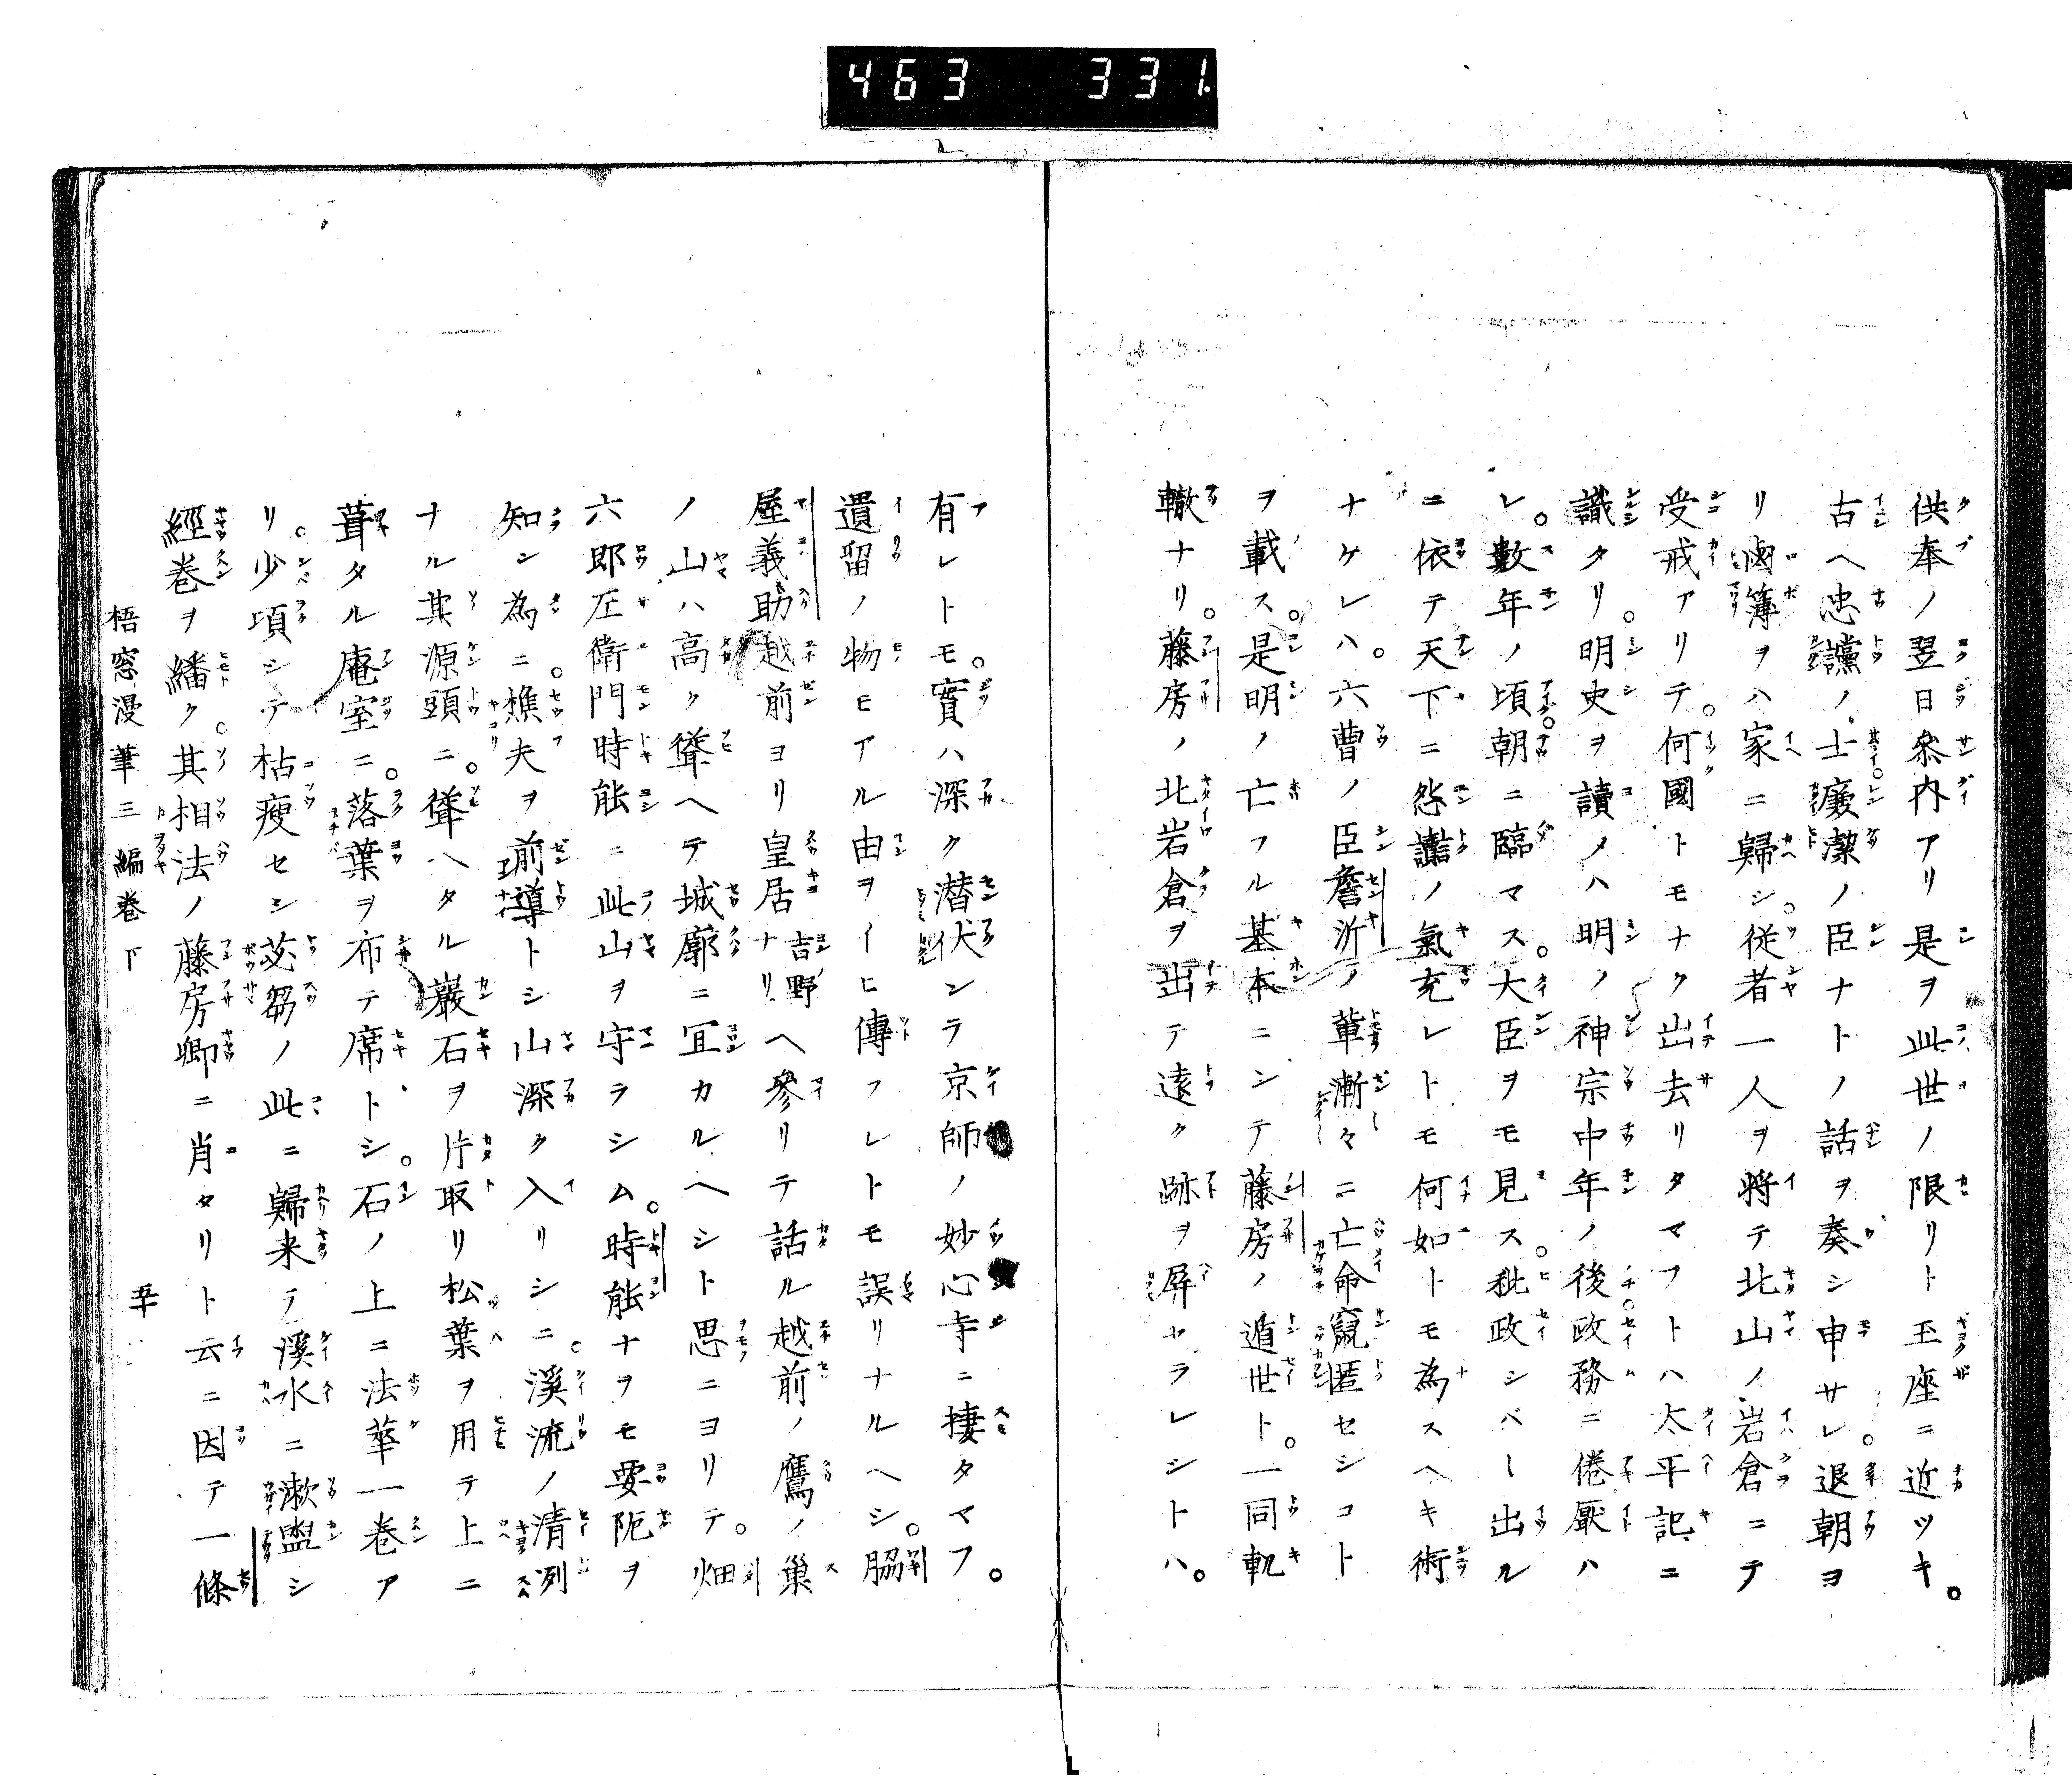 463 331
供奉ノ翌日参内アリ是ヲ此世ノ限リト玉座ニ近ツキ。
古ヘ忠讜ノ士廉潔ノ臣ナトノ話ヲ奏シ申サレ。退朝ヨ
リ鹵簿ヲハ家ニ歸シ。従者一人ヲ将テ北山ノ岩倉ニテ
受戒アリテ。何國トモナク出去リタマフトハ太平記ニ
識タリ。明史ヲ讀メハ明ノ神宗中年ノ後政務ニ倦厭ハ
レ。數年ノ頃朝ニ臨マス。大臣ヲモ見ス。秕政シバ〱出ル
ニ依テ天下ニ怨讟ノ氣充レトモ何如トモ為スヘキ術
ナケレハ。六曹ノ臣詹沂ノ輩漸々ニ亡命竄匿セシコト
ヲ載ス。是明ノ亡フル基本ニシテ藤房ノ遁世ト。一同軌
轍ナリ。藤房ノ北岩倉ヲ出テ遠ク跡ヲ屏ヤラレシトハ。
有レトモ。實ハ深ク潜伏シテ京師ノ妙心寺ニ捿タマフ。
遺留ノ物モアル由ヲイヒ傳フレトモ誤リナルヘシ。脇
屋義助越前ヨリ皇居吉野ナリヘ參リテ話ル越前ノ鷹ノ巢
ノ山ハ高ク聳ヘテ城廓ニ宜カルヘシト思ニヨリテ。畑
六郎左衛門時能ニ此山ヲ守ラシム。時能ナヲモ要阨ヲ
知ン為ニ。樵夫ヲ前導トシ山深ク入リシニ。溪流ノ清洌
ナル其源頭ニ。聳ヘタル巖石ヲ片取リ松葉ヲ用テ上ニ
葺タル庵室ニ。落葉ヲ布テ席トシ。石ノ上ニ法華一巻ア
リ。少頃シテ枯瘦セシ苾蒭ノ此ニ歸来テ溪水ニ漱盥シ
經巻ヲ繙ク。其相法ノ藤房卿ニ肖タリト云ニ因テ一條
梧窓漫筆三編巻下